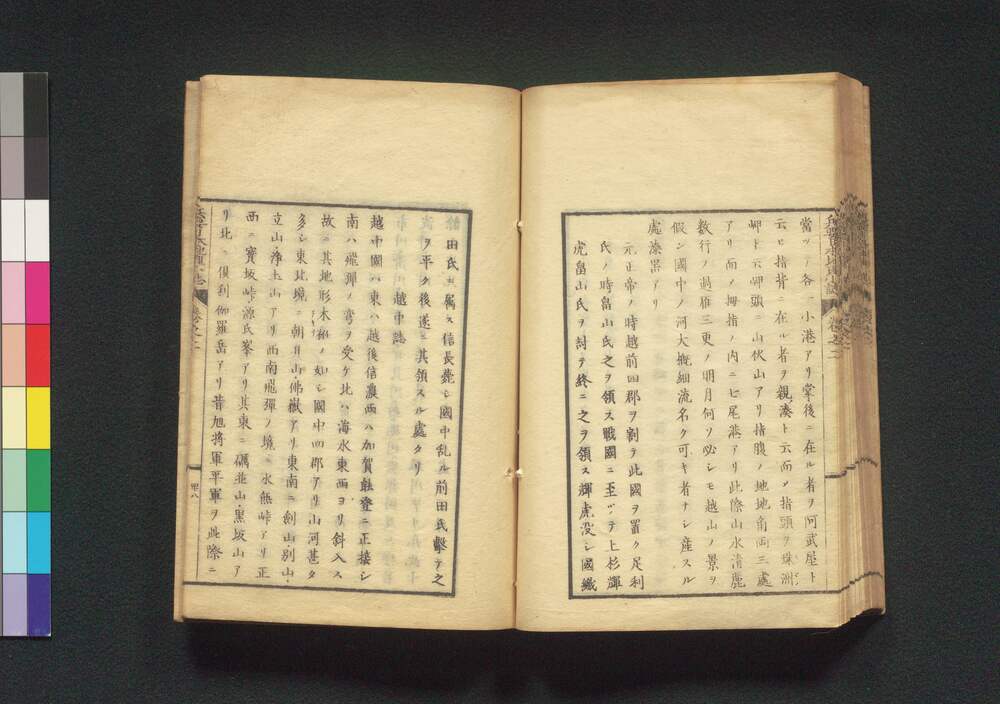 當ツテ各一小港アリ掌後ニ在ル者ヲ阿武屋ト
云ヒ指背ニ在ル者ヲ親湊ト云而ノ指頭ヲ珠洲
岬ト云岬頭ニ山伏山アリ指腹ノ地地角両三處
アリ而ノ拇指ノ内ニ七尾港アリ此際山水清麗
数行ノ過雁三更ノ明月何ソ必シモ越山ノ景ヲ
假ン國中ノ河大概細流名ク可キ者ナシ産スル
處漆器アリ
元正帝ノ時越前四郡ヲ割テ此國ヲ置ク足利
氏ノ時畠山氏之ヲ領ス戰國ニ至ツテ上杉輝
虎畠山氏ヲ討テ終ニ之ヲ領ス輝虎没シ國織
田氏ニ属ス信長薨シ國中乱ル前田氏擊テ之
ヲ平ク後遂ニ其領スル處タリ
越中誌
越中國ハ東ハ越後信濃西ハ加賀能登ニ正接シ
南ハ飛騨ノ弯ヲ受ケ北ハ海水東西ヨリ斜入ス
故ニ其地形木柹ノ如シ國中四郡アリ山河甚タ
多シ東北境ニ朝日山佛嶽アリ東南ニ劍山別山
立山浄土山アリ西南飛彈ノ境ニ水無峠アリ正
西ニ寳坂峠源氏峯アリ其東ニ礪並山黒坂山ア
リ北ニ倶利伽羅岳アリ昔旭将軍平軍ヲ此際ニ
卷之二
四八